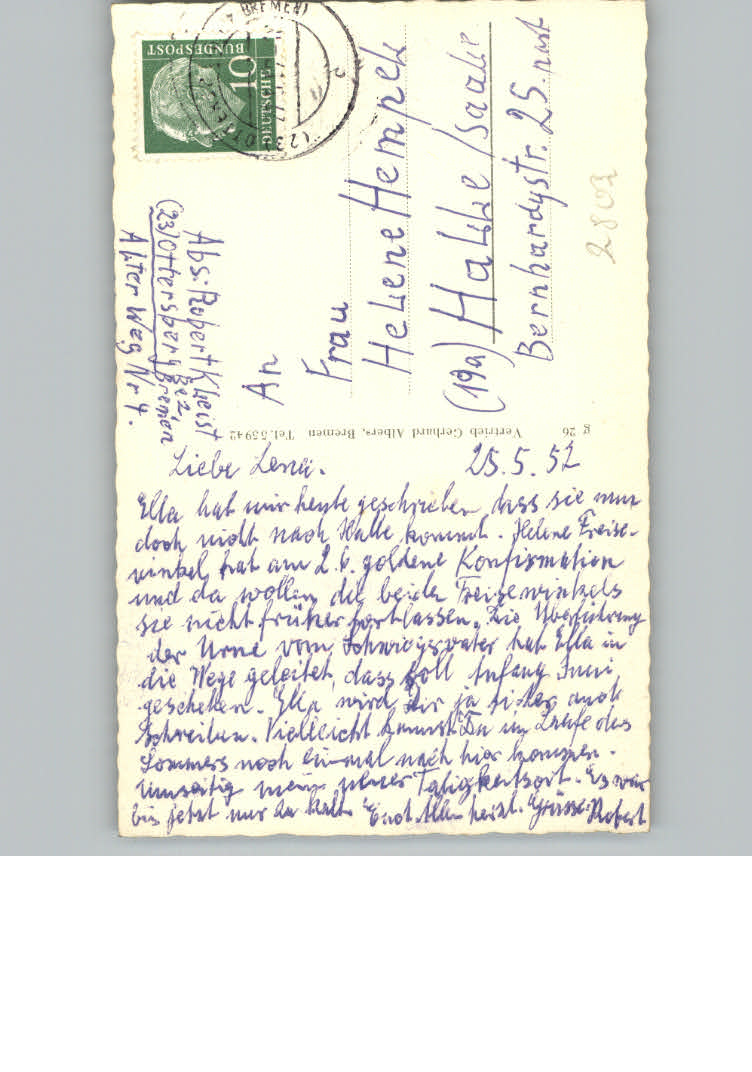 DEUTSCHE
BUNDESPOST
10
(23) OTTERSBERG
BREMEN)
Abs: Robert Kleist
(23) Ottersberg Bez,
Bremen
Alter Weg Nr 4.
An
Frau
Helene Hempel
(19a) Halle/Saale
Bernhardystr. 25. part
2803
g 26 Vertrieb Gerhard Albers, Bremen Tel. 55942
Liebe Leni. 25.5.57
Ella hat mir heute geschrieben, dass sie nun
doch nicht nach Halle kommt. Helene Freise-
winkel, hat am 2.6. goldene Konfirmation
und da wollen die beiden Freisewinkels
sie nicht früher fortlassen. Die Überführung
der Urne vom Schwiegervater hat Ella in
die Wege geleitet, dass soll Anfang Juni
geschehen. Ella wird Dir ja sicher auch
schreiben. Vielleicht kommst Du im Laufe des
Sommers noch einmal nach hier kommen.
Umseitig mein neuer Tätigkeitsort. Es war
bis jetzt nur zu kalt. Euch Allen herzl. Grüsse Robert